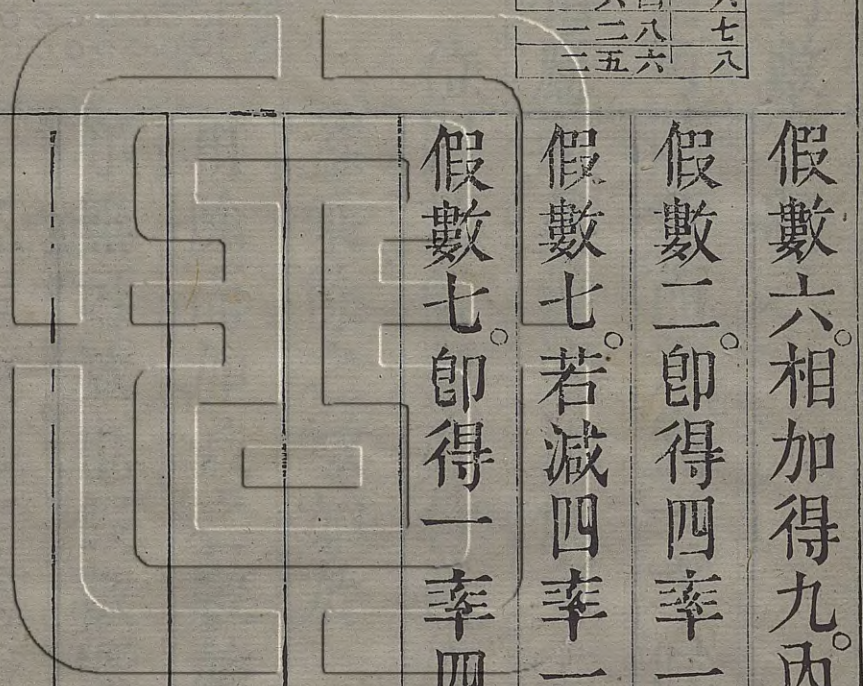 七
一二八
八
二五六
假數六。相加得九。內
假數二。即得四率一
假數七。若減四率一
假數七。即得一率四